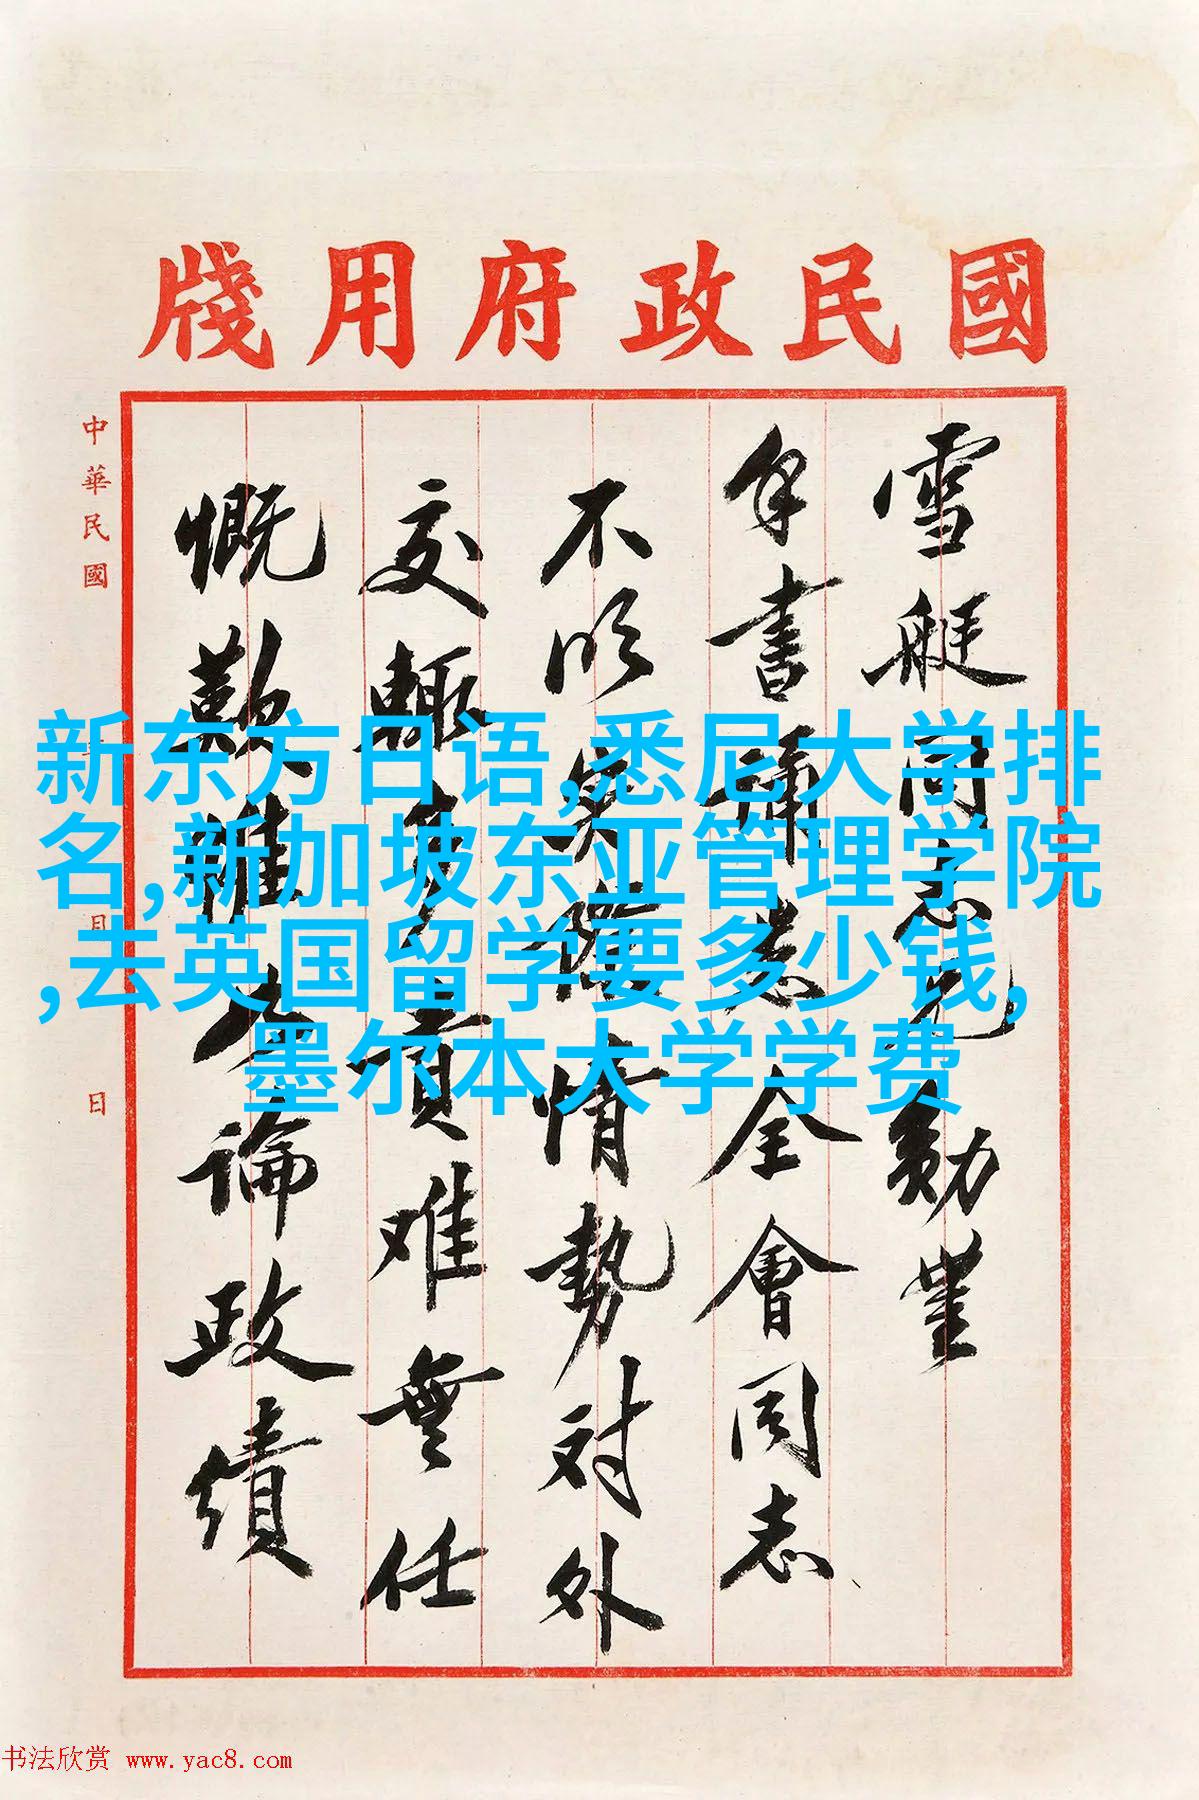 國民政府用牋
雪艇同志兄勛
手書誦悉全會同志
不明實際情勢对外
交輒多責难無任
慨歎惟論政績
中華民國 月 日
新东方日语,悉尼大学排
名,新加坡东亚管理学院
,去英国留学要多少钱,
墨尔本大学学费
书法欣赏 www.yac8.com